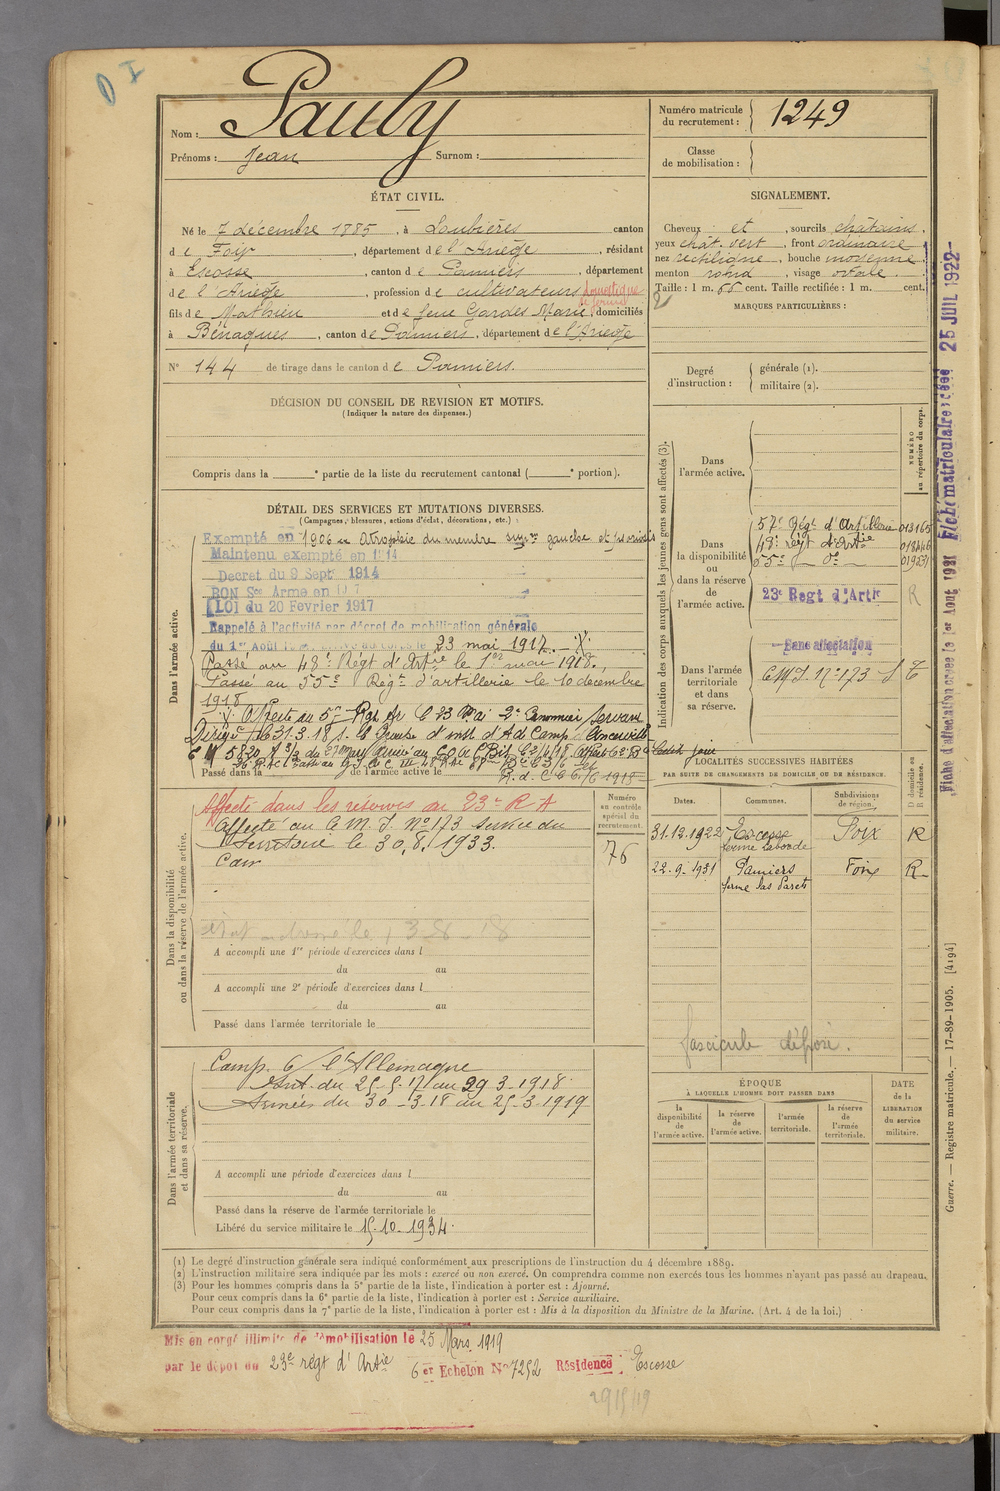 Nom : Pauly
Prénoms : Jean Surnom :
Numéro matricule du recrutement : 1249
Classe de mobilisation :
ÉTAT CIVIL.
Né le 7 décembre 1885, à Loubières canton
de Foix, département de l'Ariège, résidant
à Escosse, canton de Pamiers, département
de l'Ariège, profession de cultivateur domestique
fils de Mathieu et de feue Gardes Marie, domiciliés
à Bénagues, canton de Pamiers, département de l'Ariège
N° 144 de tirage dans le canton de Pamiers.
SIGNALEMENT.
Cheveux et, sourcils châtains,
yeux chât. vert, front ordinaire
nez rectiligne, bouche moyenne
menton rond, visage ovale.
Taille : 1 m. 66 cent. Taille rectifiée : 1 m. cent.
MARQUES PARTICULIÈRES :
Degré d'instruction : générale (1). militaire (2).
DÉCISION DU CONSEIL DE REVISION ET MOTIFS.
(Indiquer la nature des dispenses.)
Compris dans la e partie de la liste du recrutement cantonal ( e portion).
DÉTAIL DES SERVICES ET MUTATIONS DIVERSES.
(Campagnes, blessures, actions d'éclat, décorations, etc.)
Dans l'armée active.
Exempté en 1906 Atrophie du membre supre gauche
Maintenu exempté en 1914
Decret du 9 Sept 1914
BON Sce Armé en 1917
LOI du 20 Fevrier 1917
Rappelé à l'activité par décret de mobilisation générale
du 1er Août 23 mai 1917
Passé au 48e Régt d'Artrie le 1er mai 1918.
Passé au 55e Régt d'artillerie le 10 décembre
1918
Passé dans la de l'armée active le
Indication des corps auxquels les jeunes gens sont affectés (3).
NUMÉRO au répertoire du corps.
Dans l'armée active.
Dans la disponibilité ou dans la réserve de l'armée active.
57e Régt d'Artillerie
48e régt d'Artie
55e do
23e Regt d'Artie R
Dans l'armée territoriale et dans sa réserve.
Sans affectation
C M J. No 173
Fiche d'affectation créée le 1er Août 1931 Fiche matriculaire créée 25 JUIL 1922
Dans la disponibilité ou dans la réserve de l'armée active.
Affecté dans les réserves au 23e R A
Affecté au C M. J No 173 service du
Territoire le 30.8.1933.
Numéro au contrôle spécial du recrutement.
76
A accompli une 1re période d'exercices dans l
du au
A accompli une 2e période d'exercices dans l
du au
Passé dans l'armée territoriale le
LOCALITÉS SUCCESSIVES HABITÉES
PAR SUITE DE CHANGEMENTS DE DOMICILE OU DE RÉSIDENCE.
Dates. Communes. Subdivisions de région. D domicile ou R résidence.
31.12.1922 Escosse ferme Laborde Foix R
22-9-1931 Pamiers ferme las Parets Foix R
fascicule déposé.
Dans l'armée territoriale et dans sa réserve.
Camp. c/ l'Allemagne
Int. du 25-5-17 au 29 3-1918
Armées du 30-3-18 au 25-3-1919
A accompli une période d'exercices dans l
du au
Passé dans la réserve de l'armée territoriale le
Libéré du service militaire le 15.10.1934.
ÉPOQUE
À LAQUELLE L'HOMME DOIT PASSER DANS
la disponibilité de l'armée active.
la réserve de l'armée active.
l'armée territoriale.
la réserve de l'armée territoriale.
DATE de la LIBÉRATION du service militaire.
Guerre. — Registre matricule. — 17-89-1905. [4194]
(1) Le degré d'instruction générale sera indiqué conformément aux prescriptions de l'instruction du 4 décembre 1889.
(2) L'instruction militaire sera indiquée par les mots : exercé ou non exercé. On comprendra comme non exercés tous les hommes n'ayant pas passé au drapeau.
(3) Pour les hommes compris dans la 5e partie de la liste, l'indication à porter est : Ajourné.
Pour ceux compris dans la 6e partie de la liste, l'indication à porter est : Service auxiliaire.
Pour ceux compris dans la 7e partie de la liste, l'indication à porter est : Mis à la disposition du Ministre de la Marine. (Art. 4 de la loi.)
Mis en congé illimité de démobilisation le 25 Mars 1919
par le dépôt du 23e régt d'Artie 6er Echelon No 7252 Résidence Escosse